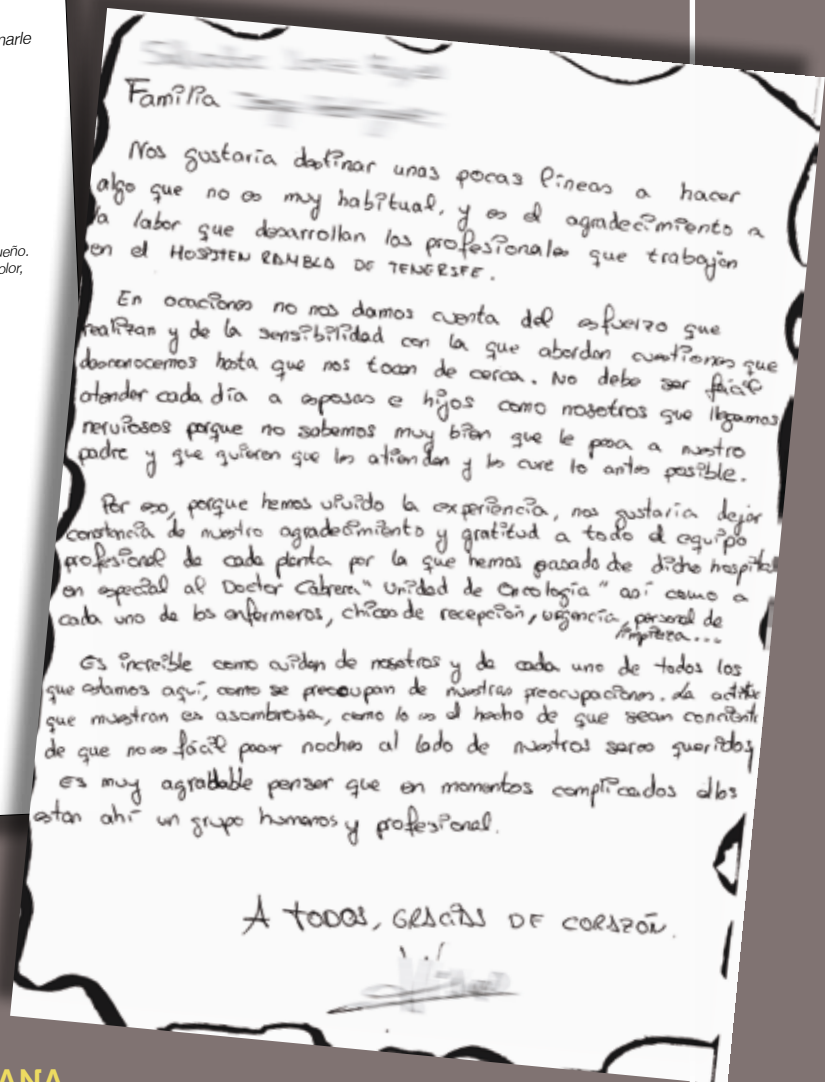 narle
ueño.
olor,
Familia
Nos gustaría destinar unas pocas líneas a hacer
algo que no es muy habitual, y es el agradecimiento a
la labor que desarrollan los profesionales que trabajan
en el HOSPITEN RAMBLA DE TENERIFE.
En ocaciones no nos damos cuenta del esfuerzo que
realizan y de la sensibilidad con la que abordan cuestiones que
desconocemos hasta que nos tocan de cerca. No debe ser fácil
atender cada día a esposas e hijos como nosotros que llegamos
nerviosos porque no sabemos muy bien que le pasa a nuestro
padre y que quieren que los atiendan y los cure lo antes posible.
Por eso, porque hemos vivido la experiencia, nos gustaría dejar
constancia de nuestro agradecimiento y gratitud a todo el equipo
profesional de cada planta por la que hemos pasado de dicho hospital
en especial al Doctor Cabrera "Unidad de Oncología" así como a
cada uno de los enfermeros, chicas de recepción, urgencia, personal de
limpieza...
Es increible como cuidan de nosotros y de cada uno de todos los
que estamos aquí, como se preocupan de nuestras preocupaciones. La actitud
que muestran es asombrosa, como lo es el hecho de que sean concientes
de que no es fácil pasar noches al lado de nuestros seres queridos
Es muy agradable pensar que en momentos complicados ellos
estan ahí un grupo humanos y profesional.
A TODOS, GRACIAS DE CORAZÓN.
ANA